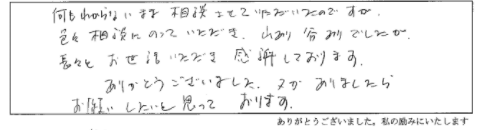 何もわからないまま相談させていただいたのですが、
色々相談にのっていただき、山あり谷ありでしたが、
長々とお世話いただき感謝しております。
ありがとうございました。又かありましたら
お願いしたいと思っております。
ありがとうございました。私の励みにいたします